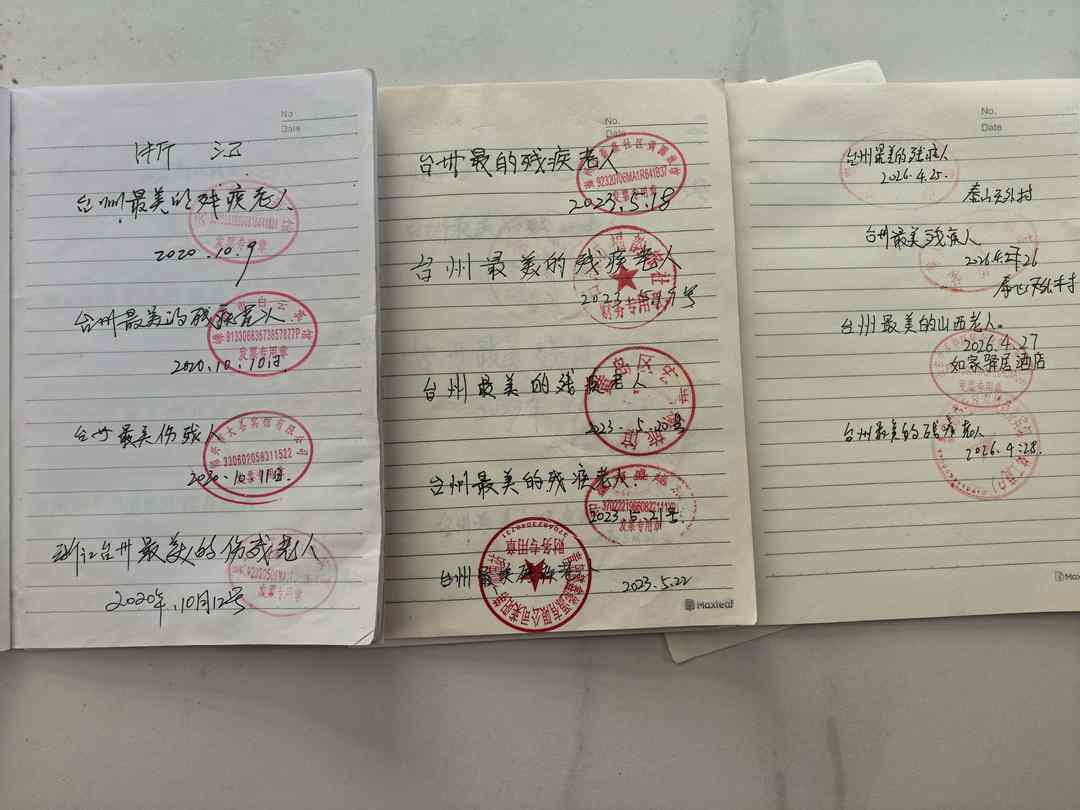 No.
Date
浙 江
台州最美的残疾老人
2020.10.9
发票专用章
台州最美的残疾老人
白云宾馆
91330683673657877P
发票专用章
2020.10.10日
台州最美伤残人
330602058311522
2020.10.11日.
浙江台州最美的伤残老人
发票专用章
2020年.10月12号
No.
Date
台州最的残疾老人
92320706MA1R641B37
发票专用章
2023.5.18
台州最美的残疾老人
财务专用章
台州最美的残疾老人
2023.5.20号
台州最美的残疾老人
2023.5.21号
发票专用章
财务专用章
台州最美残疾老人
2023.5.22
Maxleaf
No.
Date
台州最美的残疾人
2026.4.25.
泰山天外村
台州最美残疾人
泰山天外村
台州最美的山西老人。
2026.4.27
如家驿居酒店
发票专用章
台州最美的残疾老人
2026.4.28.